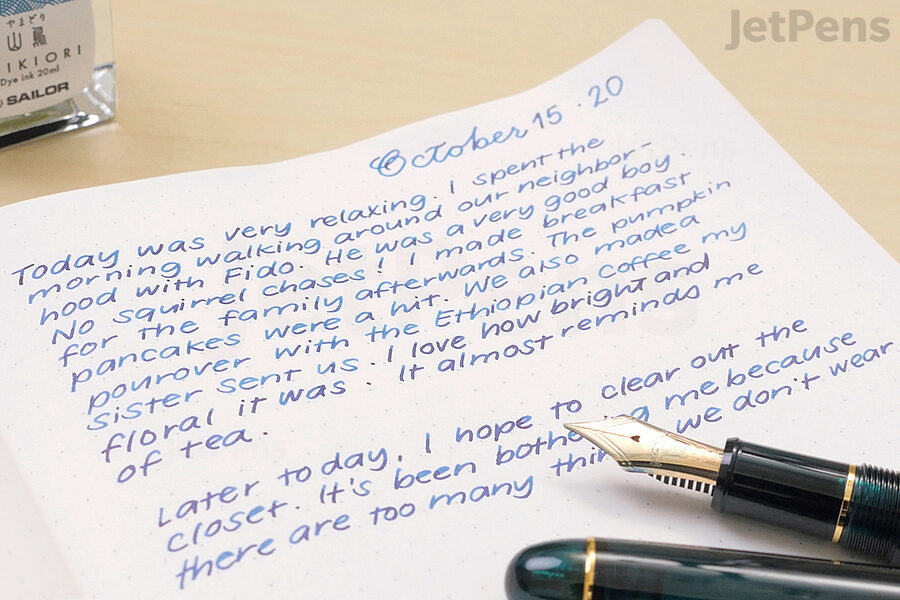 JetPens
やまどり
山鳥
IKIORI
Dye ink 20ml
SAILOR
October 15 · 20
Today was very relaxing. I spent the
morning walking around our neighbor-
hood with Fido. He was a very good boy.
No squirrel chases! I made breakfast
for the family afterwards. The pumpkin
pancakes were a hit. We also made a
pourover with the Ethiopian coffee my
sister sent us. I love how bright and
floral it was. It almost reminds me
of tea.
Later today, I hope to clear out the
closet. It's been me because
there are too many we don't wear